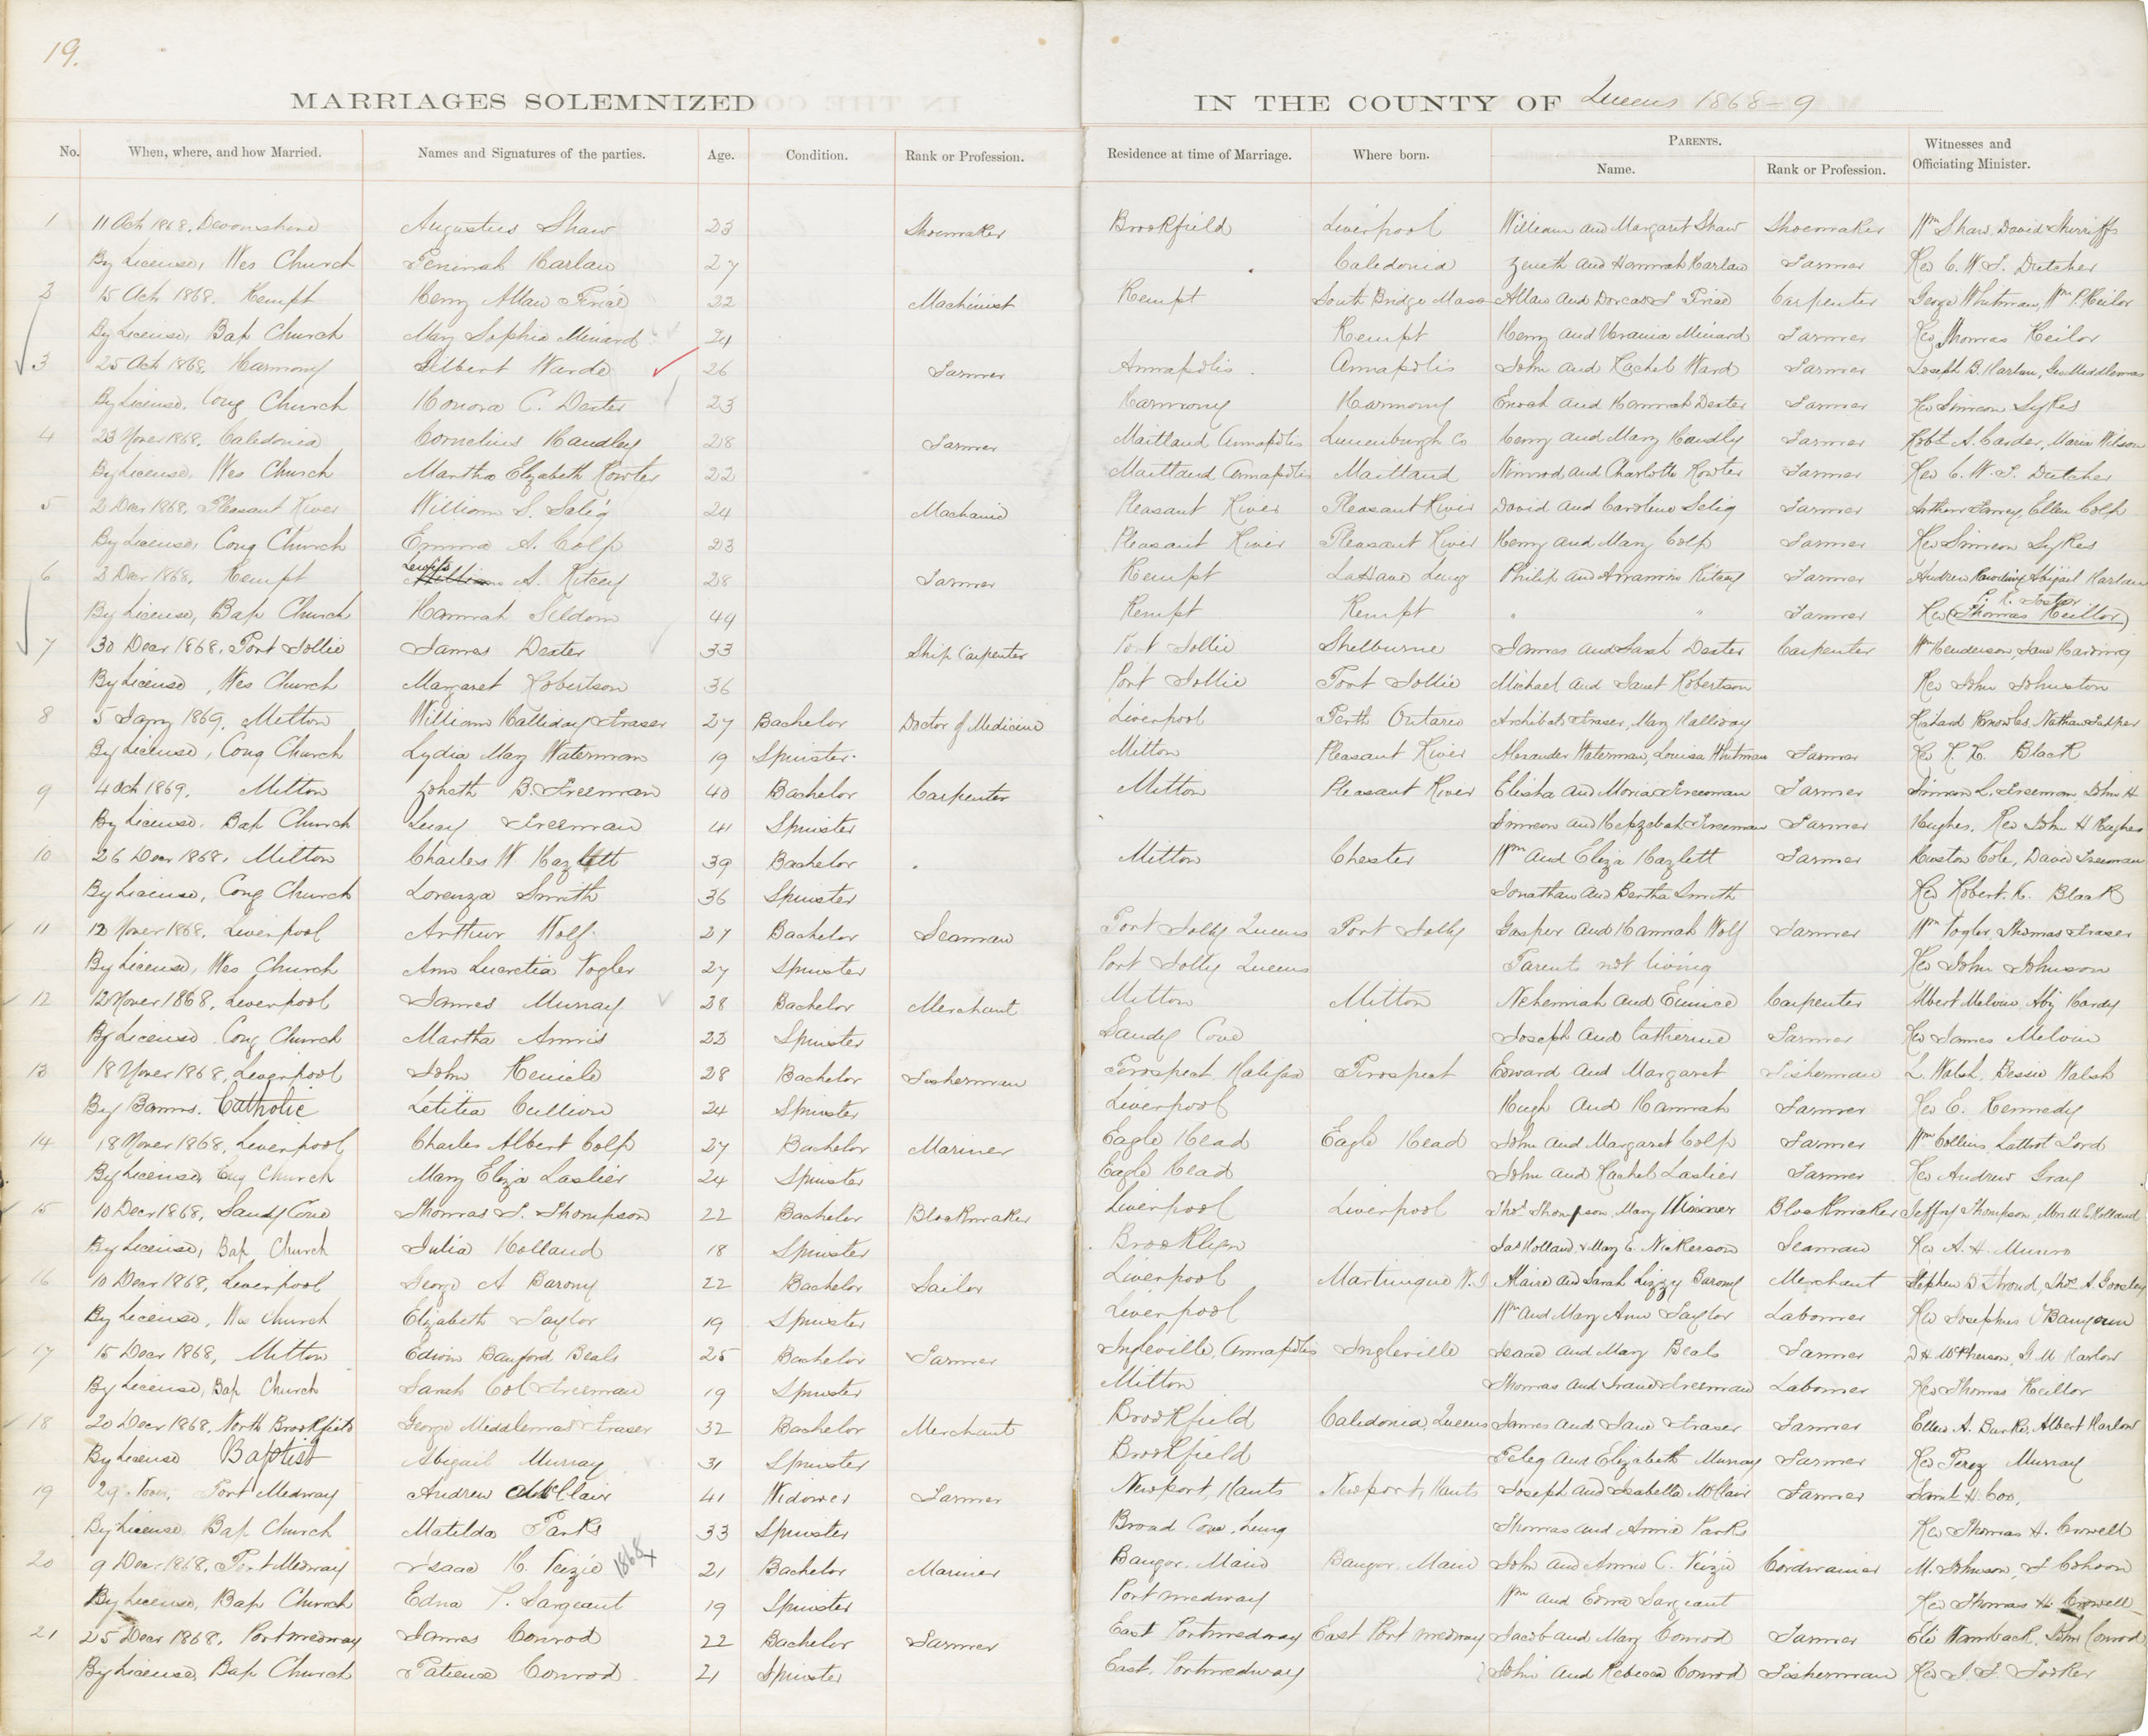 19.
MARRIAGES SOLEMNIZED IN THE COUNTY OF Queens 1868-9
No. When, where, and how Married. Names and Signatures of the parties. Age. Condition. Rank or Profession. Residence at time of Marriage. Where born. PARENTS. Name. Rank or Profession. Witnesses and Officiating Minister.
1 11 Oct 1868, Devonshire Augustus Shaw 23 Shoemaker Brookfield Liverpool William and Margaret Shaw Shoemaker Wm Shaw, David Sherriffs
By License, Wes Church Harlow 27 Caledonia Zeneth and Hannah Harlow Farmer Rev C. W. T. Dutcher
2 15 Oct 1868. Kempt Henry Allan 22 Machinist Kempt South Bridge Mass Allan and Dorcas Carpenter George Whitman, Wm P. Keilor
By License, Bap Church Mary Sophia Minard 24 Kempt Henry and Urania Minard Farmer Rev Thomas Keilor
3 25 Oct 1868, Harmony Gilbert Warde 26 Farmer Annapolis Annapolis John and Rachel Ward Farmer Joseph B. Harlow, Geo Middlemas
By License, Cong Church Honora C. Dexter 23 Harmony Harmony Enoch and Hannah Dexter Farmer Rev Simeon Sykes
4 23 Nover 1868, Caledonia Cornelius Handley 28 Farmer Maitland Annapolis Lunenburgh Co Henry and Mary Handly Farmer Robt A. Carder, Maria Wilson
By License, Wes Church Martha Elizabeth Howter 22 Maitland Annapolis Maitland Nimrod and Charlotte Howter Farmer Rev C. W. T. Dutcher
5 2 Decr 1868, Pleasant River William S. Selig 24 Mechanic Pleasant River Pleasant River David and Caroline Selig Farmer Ellen Colp
By License, Cong Church Emma A. Colp 23 Pleasant River Pleasant River Henry and Mary Colp Farmer Rev Simeon Sykes
6 2 Decr 1868, Kempt William A. Ritcey 28 Farmer Kempt LaHave Lung Philip and Ritcey Farmer Andrew Abijail Harlow
By License, Bap Church Hannah Seldom 44 Kempt Kempt " " Farmer Rev (Thomas Keillor) P. R. Foster
7 30 Decr 1868, Port Jollie James Dexter 33 Ship Carpenter Port Jollie Shelburne James and Sarah Dexter Carpenter Wm Henderson, Jane Harding
By License, Wes Church Margaret Robertson 36 Port Jollie Port Jollie Michael and Janet Robertson Rev John Johnston
8 5 Jany 1869, Milton William Halliday Fraser 27 Bachelor Doctor of Medicine Liverpool Perth Ontario Archibald Fraser, Mary Halliday Richard Knowles, Nathan Tupper
By License, Cong Church Lydia May Waterman 19 Spinster Milton Pleasant River Alexander Waterman, Louisa Whitman Farmer Rev R. K. Black
9 4 Oct 1869. Milton Zoheth B. Freeman 40 Bachelor Carpenter Milton Pleasant River Elisha and Maria Freeman Farmer Simeon L. Freeman, John H
By License, Bap Church Lucy Freeman 41 Spinster Simeon and Hepzebah Freeman Farmer Hughes, Rev John H Hughes
10 26 Decr 1868, Milton Charles W Hazlett 39 Bachelor Milton Chester Wm and Eliza Hazlett Farmer Huston Cole, David Freeman
By License, Cong Church Lorenza Smith 36 Spinster Jonathan and Bertha Smith Rev Robert. K. Black
11 12 Nover 1868, Liverpool Arthur Wolf 27 Bachelor Seaman Port Jolly Queens Port Jolly Gasper and Hannah Wolf Farmer Wm Vogler, Thomas Fraser
By License, Wes Church Ann Lucretia Vogler 27 Spinster Port Jolly Queens Parents not living Rev John Johnson
12 12 Nover 1868, Liverpool James Murray 28 Bachelor Merchant Milton Milton Nehemiah and Eunice Carpenter Albert Melvin, Abj Hardy
By License Cong Church Martha Annis 22 Spinster Sandy Cove Joseph and Catherine Farmer Rev James Melvin
13 18 Nover 1868, Liverpool John 28 Bachelor Fisherman Prospect Halifax Prospect Edward and Margaret Fisherman L. Walsh, Bessie Walsh
By Banns. Catholic Letitia Cullion 24 Spinster Liverpool Hugh and Hannah Farmer Rev E. Kennedy
14 18 Nover 1868, Liverpool Charles Albert Colp 27 Bachelor Mariner Eagle Head Eagle Head John and Margaret Colp Farmer Wm Collins, Lord
By License, Church Mary Eliza Laslier 24 Spinster Eagle Head John and Rachel Laslier Farmer Rev Andrew Gray
15 10 Decr 1868, Sandy Cove Thomas S. Thompson 22 Bachelor Blockmaker Liverpool Liverpool Thos Thompson, Mary Winner Blockmaker Jeffry Thompson, Holland
By License, Bap Church Julia Holland 18 Spinster Brooklyn Jas Holland & Mary E. Nickerson Seaman Rev A. H. Munro
16 10 Decr 1868, Liverpool George A Barony 22 Bachelor Sailor Liverpool Martinique W.I Alaire and Sarah Lizzy Barony Merchant Stephen D Stroud, Thos A. Goosley
By License, Wes Church Elizabeth Taylor 19 Spinster Liverpool Wm and Mary Ann Taylor Laborer Rev Josephus
17 15 Decr 1868, Milton Edwin Banford Beals 25 Bachelor Farmer Ingleville, Annapolis Ingleville Isaac and Mary Beals Farmer D H. McPherson, G. M Harlow
By License, Bap Church Sarah Col Freeman 19 Spinster Milton Thomas and Freeman Laborer Rev Thomas Keillor
18 20 Decr 1868, North Brookfield George Middlemas Fraser 32 Bachelor Merchant Brookfield Caledonia, Queens James and Jane Fraser Farmer Ellen A. Burke, Albert Harlow
By License Baptist Abigail Murray 31 Spinster Brookfield Peleg and Elizabeth Murray Farmer Rev Perez Murray
19 29 Nover, Port Medway Andrew McClair 41 Widower Farmer Newport, Hants Newport, Hants Joseph and Isabella McClair Farmer Saml H. Coo,
By License, Bap Church Matilda Parks 33 Spinster Broad Cove, Lung Thomas and Annie Parks Rev Thomas H. Crowell
20 9 Decr 1868, Port Medway Isaac H. Veizie 1868 x 21 Bachelor Mariner Bangor, Maine Bangor, Maine John and Annie C. Veizie Cordwainer M. Johnson, S Cohoon
By License, Bap Church Edna P. Sargeant 19 Spinster Port medway Wm and Edna Sargeant Rev Thomas H. Crowell
21 25 Decr 1868, Port medway James Conrod 22 Bachelor Farmer East Portmedway East Port medway Jacob and Mary Conrod Farmer Eli Wambach, John Conrod
By License, Bap Church Patience Conrod 21 Spinster East, Portmedway John and Rebecca Conrod Fisherman Rev